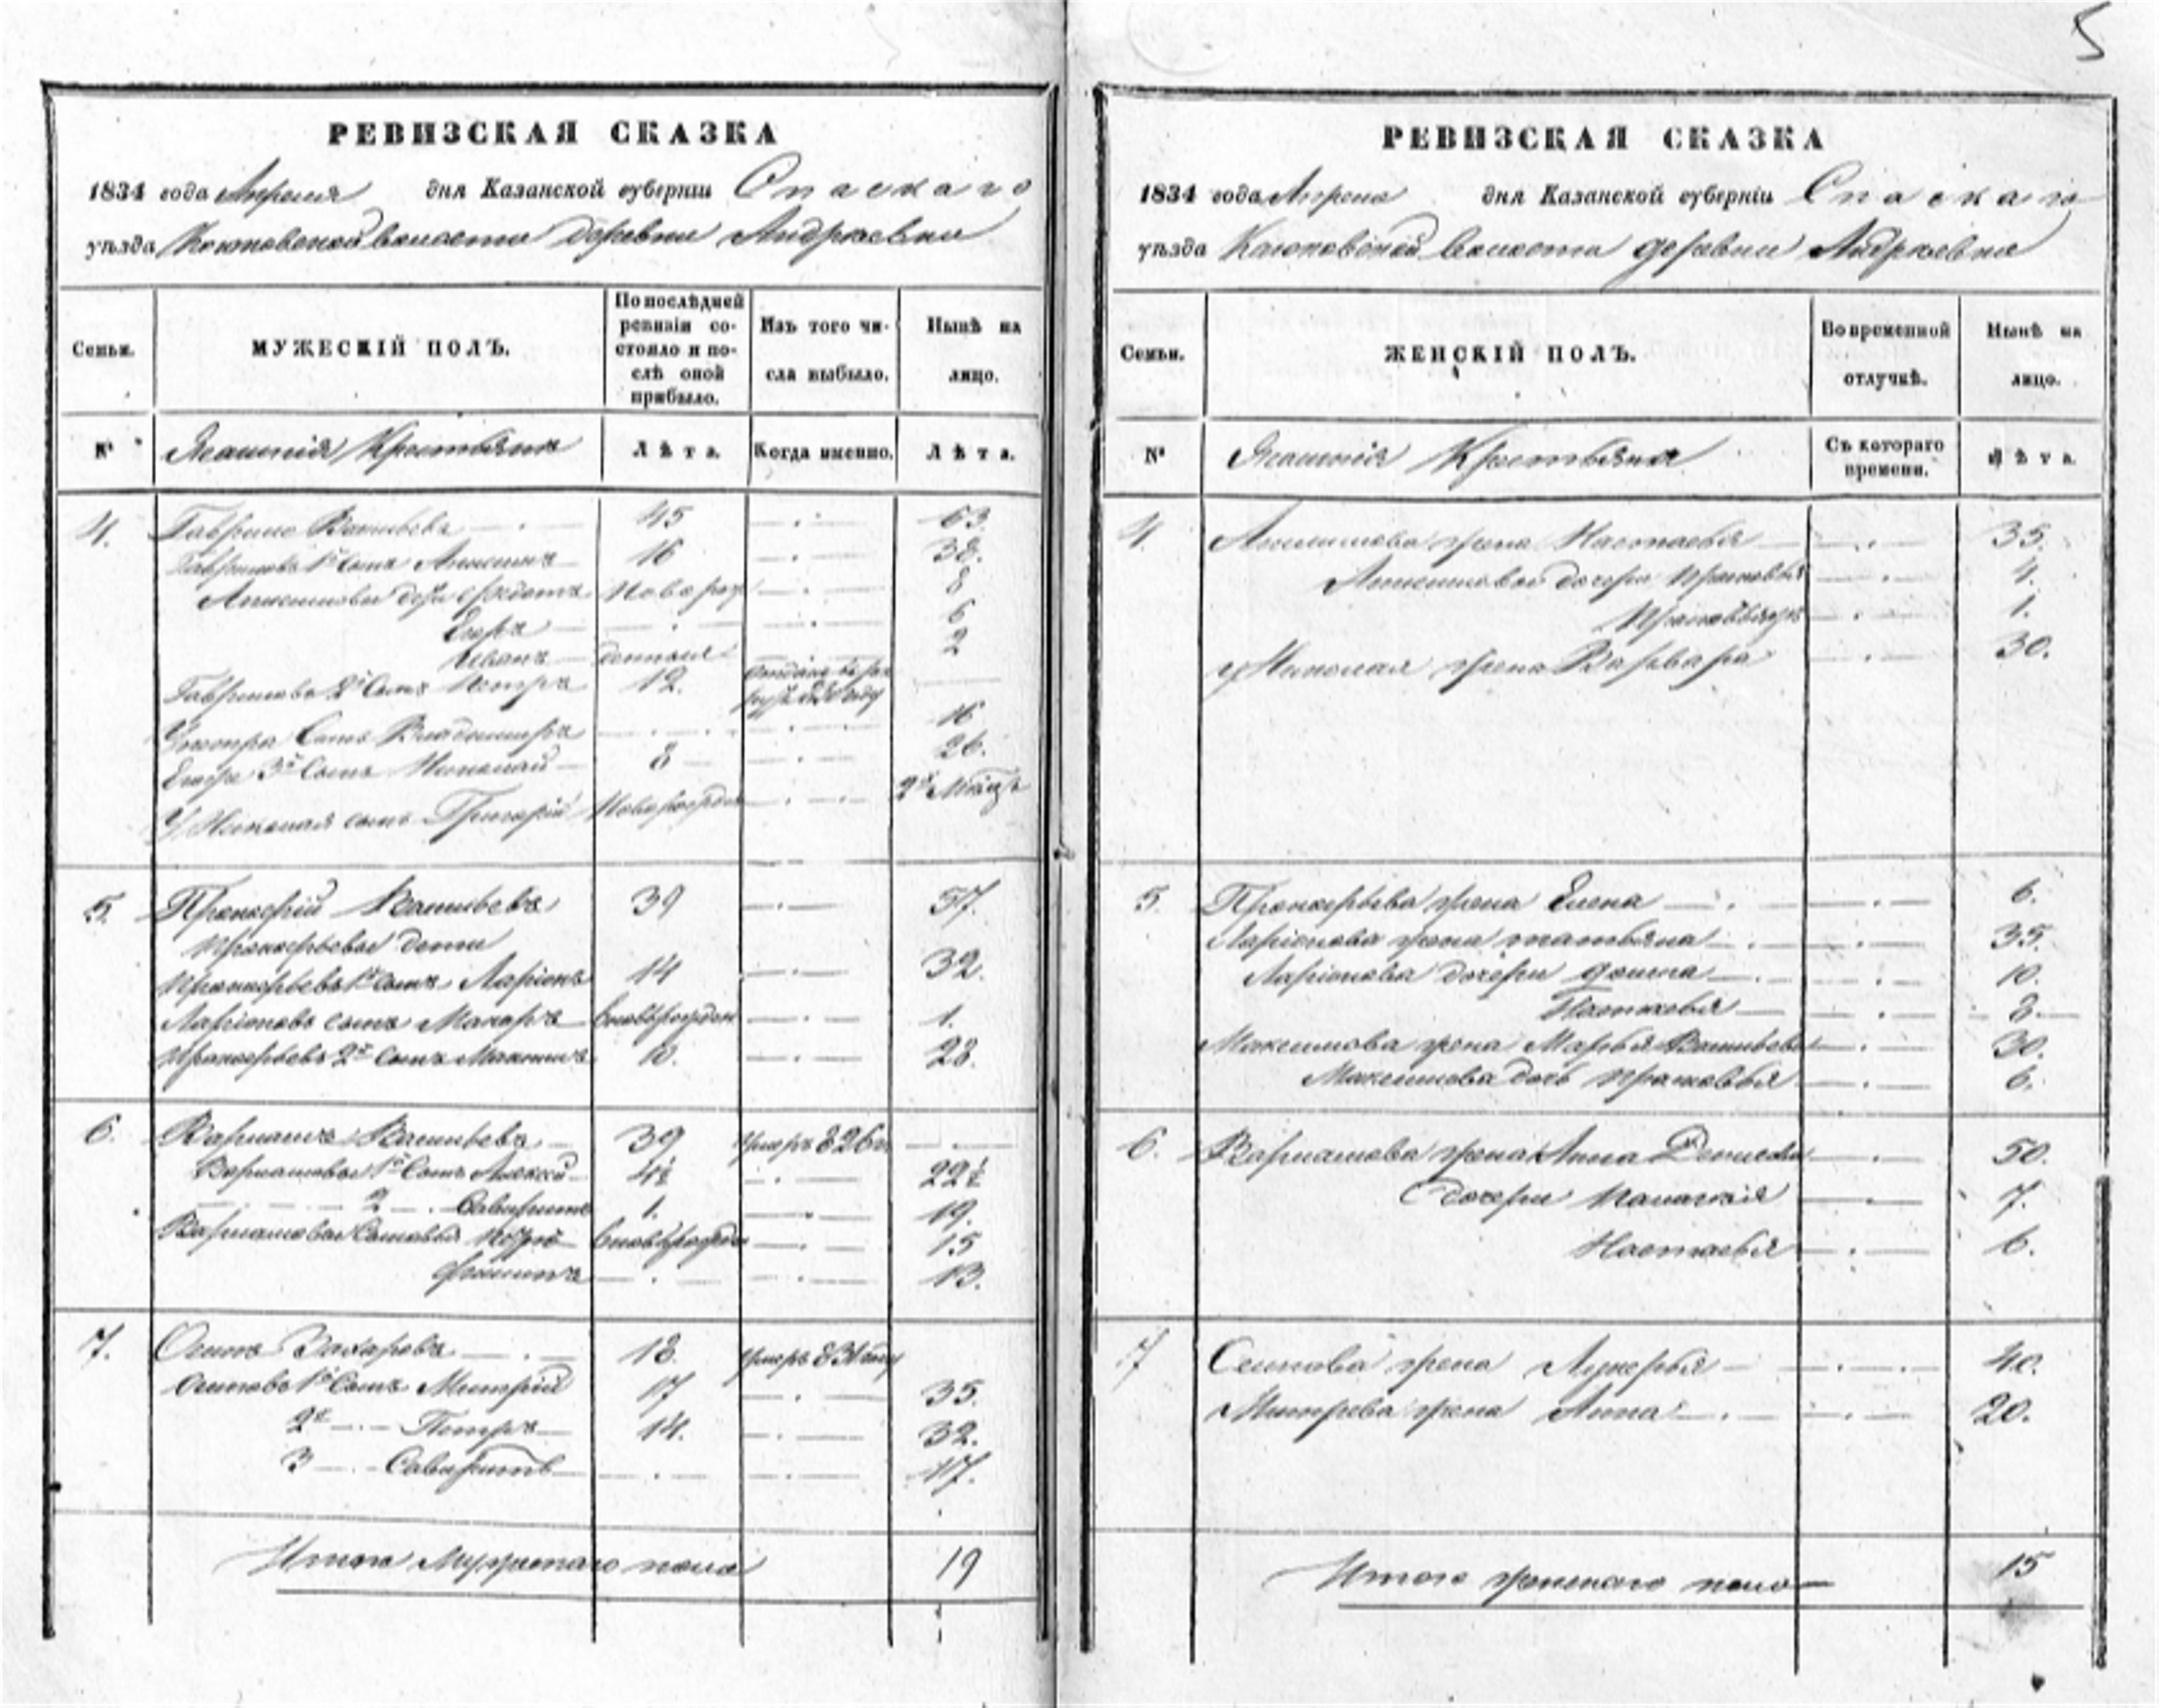 5
РЕВИЗСКАЯ СКАЗКА
1834 года Апреля дня Казанской губерніи Спаскаго
уѣзда волости деревни Андреевки
Семьи. МУЖЕСКІЙ ПОЛЪ. По послѣдней ревизіи состояло и послѣ оной прибыло. Изъ того числа выбыло. Нынѣ на лицо.
№ Ясашнія Крестьяна Лѣта. Когда именно. Лѣта.
4. Гаврило Васильевъ 45 63.
Гавриловъ 1й сынъ Анисимъ 16 38.
Анисимовы дети 8
Егоръ 6
Иванъ 2
Гавриловъ 2й сынъ Петръ 12.
У Петра сынъ Владимиръ 16
3й сынъ Николай 8 26.
У Николая сынъ Григорій Новорожден 2х
5. Прокофій Васильевъ 39 57.
Прокофьевы дети
Прокофьевъ 1й сынъ Ларіонъ 14 32.
Ларіоновъ сынъ Макаръ вновьрожден 1.
Прокофьевъ 2й сынъ Максимъ 10. 28.
6. Васильевъ 39 умеръ 826
1й сынъ Алексѣй 4½ 22½
2 1. 19.
сыновья вновьрожден 15
Филипъ 13.
7. Осипъ Захаровъ 18. умеръ 831 году
Осиповъ 1й сынъ Митрій 17 35.
2й Петръ 14. 32.
3 17.
Итого Мужескаго пола 19
РЕВИЗСКАЯ СКАЗКА
1834 года Апреля дня Казанской губерніи Спаскаго
уѣзда волости деревни Андреевки
Семьи. ЖЕНСКІЙ ПОЛЪ. Во временной отлучкѣ. Нынѣ на лицо.
№ Ясашнія Крестьяна Съ котораго времени. Лѣта.
4. Анисимова жена Настасья 35.
Анисимовы дочери Прасковья 4.
1.
у Николая жена Варвара 30.
5. Прокофьева жена Елена 6.
Ларіонова жена татьяна 35.
Ларіонова дочери 10.
8.
Максимова жена Марья Васильева 30.
Максимова дочь Прасковья 6.
6. жена Анна Денисова 50.
дочери Палагѣія 7.
Настасья 6.
7 жена Лукерья 40.
Митрева жена Анна 20.
Итого женскаго пола 15